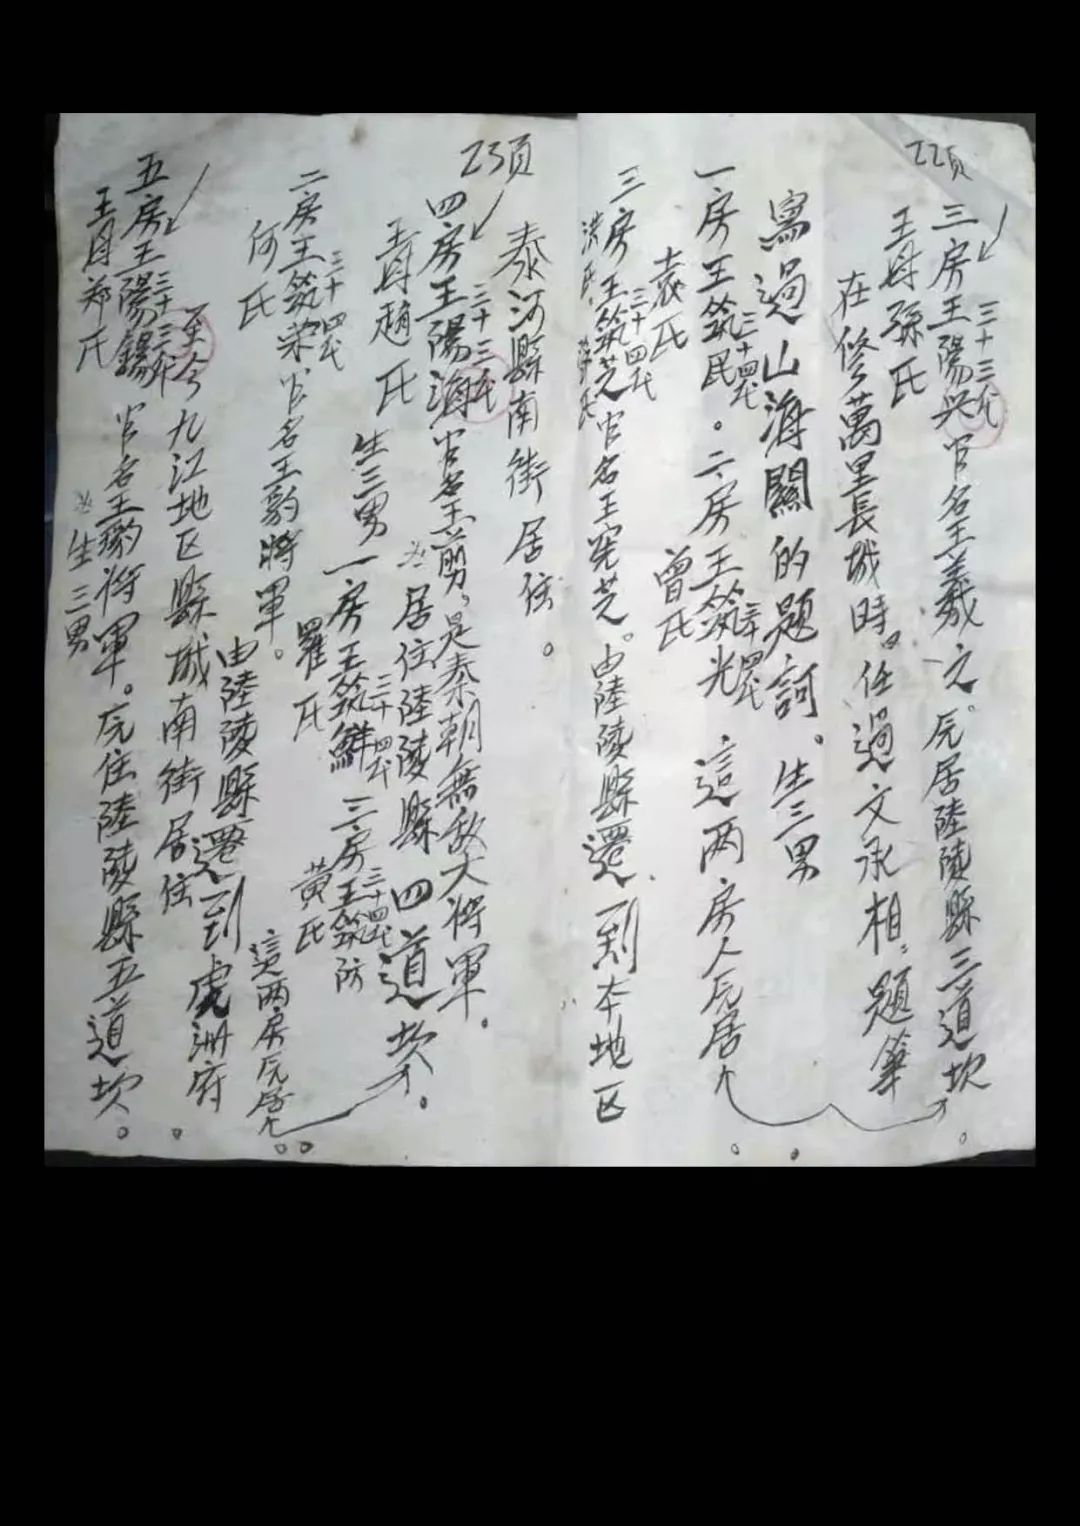 22頁
三房王陽兴官名王羲之。元居陸陵縣三道坎
三十三代
王母孫氏
在修萬里長城時。任過文承相，題筆
寫過山海關的題詞。生三男
一房王筑民。二房王筑光 這两房人元居
三十四代
三十四代
袁氏
曾氏
三房王筑芝官名王宪芝。由陸陵縣遷到本地区
三十四代
洪氏
泰河縣南街居住。
23頁
四房王陽海官名王翦，是秦朝無敌大将軍。
三十三代
王母趙氏
居住陸陵縣四道坎。
生三男一房王筑鮮 三房王筑防
三十四代
三十四代
羅氏
黄氏
這两房元居
二房王筑荣官名王豹将軍。
三十四代
何氏
由陸陵縣遷到虔洲府
至今九江地区縣城南街居住
五房王陽錫 官名王豹将軍。元住陸陵縣五道坎。
三十三代
王母郑氏
生三男